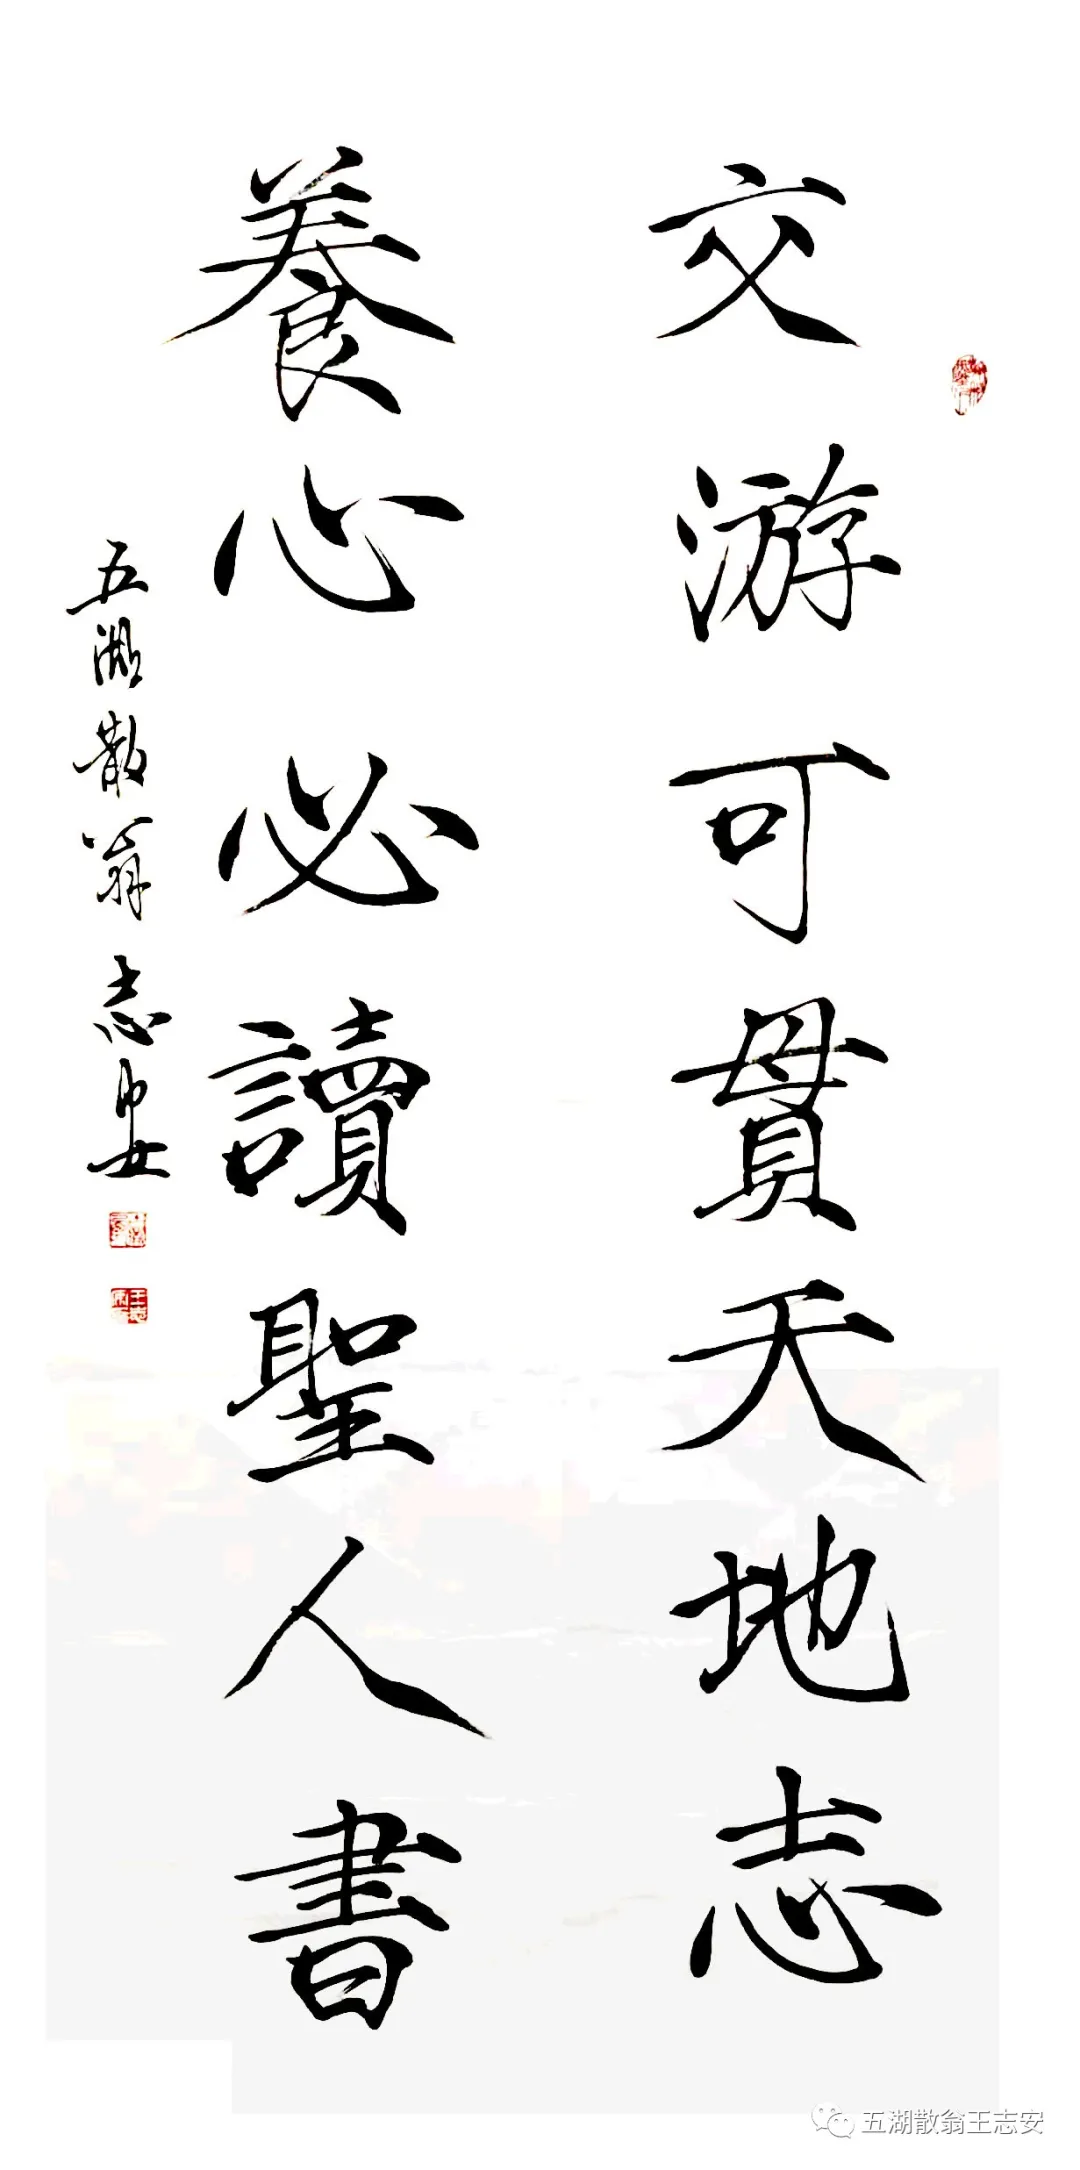 交游可贯天地志
養心必讀聖人書
五湖散翁志安
五湖散翁王志安